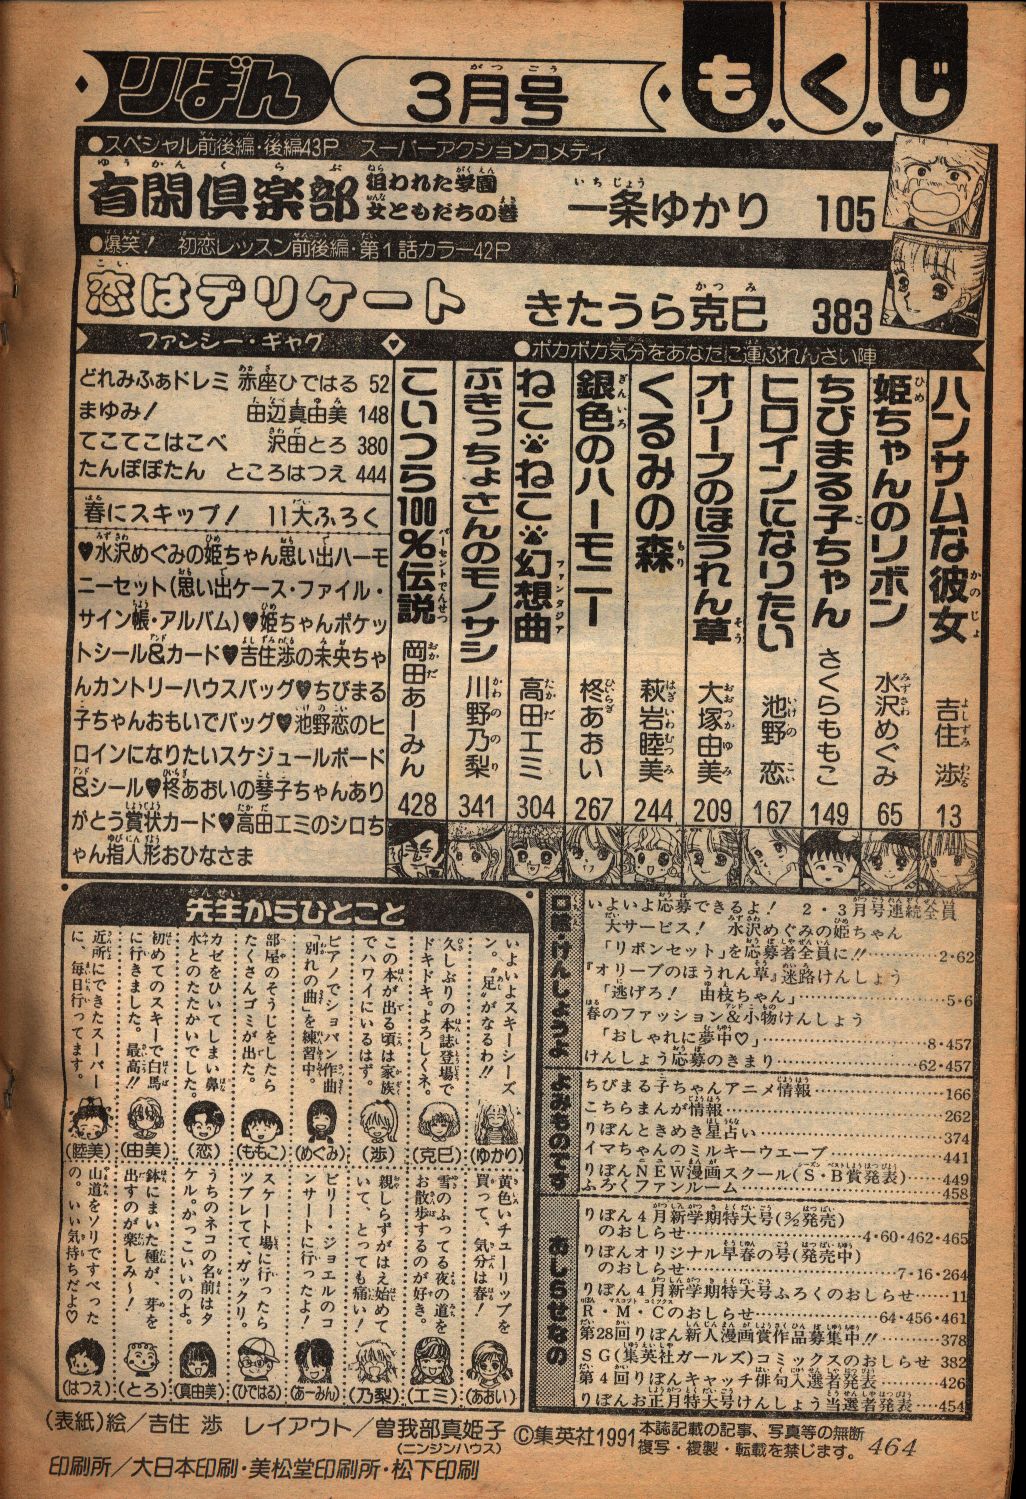 りぼん 3月号 もくじ
●スペシャル前後編・後編43P スーパーアクションコメディ
有閑倶楽部 狙われた学園 女ともだちの巻 一条ゆかり 105
●爆笑! 初恋レッスン前後編・第1話カラー42P
恋はデリケート きたうら克巳 383
●ポカポカ気分をあなたに運ぶれんさい陣
ハンサムな彼女 吉住渉 13
姫ちゃんのリボン 水沢めぐみ 65
ちびまる子ちゃん さくらももこ 149
ヒロインになりたい 池野恋 167
オリーブのほうれん草 大塚由美 209
くるみの森 萩岩睦美 244
銀色のハーモニー 柊あおい 267
ねこ・ねこ・幻想曲 高田エミ 304
ぶきっちょさんのモノサシ 川野乃梨 341
こいつら100%伝説 岡田あーみん 428
ファンシー・ギャグ
どれみふぁドレミ 赤座ひではる 52
まゆみ! 田辺真由美 148
てこてこはこべ 沢田とろ 380
たんぽぽたん ところはつえ 444
春にスキップ! 11大ふろく
♥水沢めぐみの姫ちゃん思い出ハーモ
ニーセット(思い出ケース・ファイル・
サイン帳・アルバム)♥姫ちゃんポケッ
トシール&カード♥吉住渉の未央ちゃ
んカントリーハウスバッグ♥ちびまる
子ちゃんおもいでバッグ♥池野恋のヒ
ロインになりたいスケジュールボード
&シール♥柊あおいの琴子ちゃんあり
がとう賞状カード♥高田エミのシロち
ゃん指人形おひなさま
先生からひとこと
いよいよスキーシーズ
ン。"足"がなるわ!!
(ゆかり)
久しぶりの本誌登場で
ドキドキ。よろしくネ。
(克巳)
この本が出る頃は家族
でハワイにいるはず。
(渉)
ピアノでショパン作曲
「別れの曲」を練習中。
(めぐみ)
部屋のそうじをしたら
たくさんゴミが出た。
(ももこ)
カゼをひいてしまい鼻
水とのたたかいでした。
(恋)
初めてのスキーで白馬
に行きました。最高!!
(由美)
近所にできたスーパー
に、毎日行ってます。
(睦美)
黄色いチューリップを
買って、気分は春!
(あおい)
雪のふってる夜の道を
お散歩するのが好き。
(エミ)
親しらずがはえ始めて
いて、とっても痛い!
(乃梨)
ビリー・ジョエルのコ
ンサートに行ったよ!
(あーみん)
スケート場に行ったら
ツブレてて、ガックリ。
(ひではる)
うちのネコの名前はタ
ケル。かっこいいのよ。
(真由美)
鉢にまいた種が、芽を
出すのが楽しみ〜!
(とろ)
山道をソリですべった
の。いい気持ちだよ♡
(はつえ)
いよいよ応募できるよ! 2・3月号連続全員
大サービス! 水沢めぐみの姫ちゃん
「リボンセット」を応募者全員に!! 2・62
『オリーブのほうれん草』迷路けんしょう
「逃げろ! 由枝ちゃん」 5・6
春のファッション&小物けんしょう
「おしゃれに夢中♡」 8・457
けんしょう応募のきまり 62・457
よみものです
ちびまる子ちゃんアニメ情報 166
こちらまんが情報 262
りぼんときめき星占い 374
イマちゃんのミルキーウエーブ 441
りぼんNEW漫画スクール(S・B賞発表) 449
ふろくファンルーム 458
おしらせなの
りぼん4月新学期特大号(3/2発売)
のおしらせ 4・60・462・465
りぼんオリジナル早春の号(発売中)
のおしらせ 7・16・264
りぼん4月新学期特大号ふろくのおしらせ 11
R・M・Cのおしらせ 64・456・461
第28回りぼん新人漫画賞作品募集中!! 378
SG(集英社ガールズ)コミックスのおしらせ 382
第4回りぼんキャッチ俳句入選者発表 426
りぼんお正月特大号けんしょう当選者発表 454
(表紙)絵/吉住 渉 レイアウト/曽我部真姫子(ニンジンハウス) ©集英社1991 本誌記載の記事、写真等の無断複写・複製・転載を禁じます。 464
印刷所/大日本印刷・美松堂印刷所・松下印刷